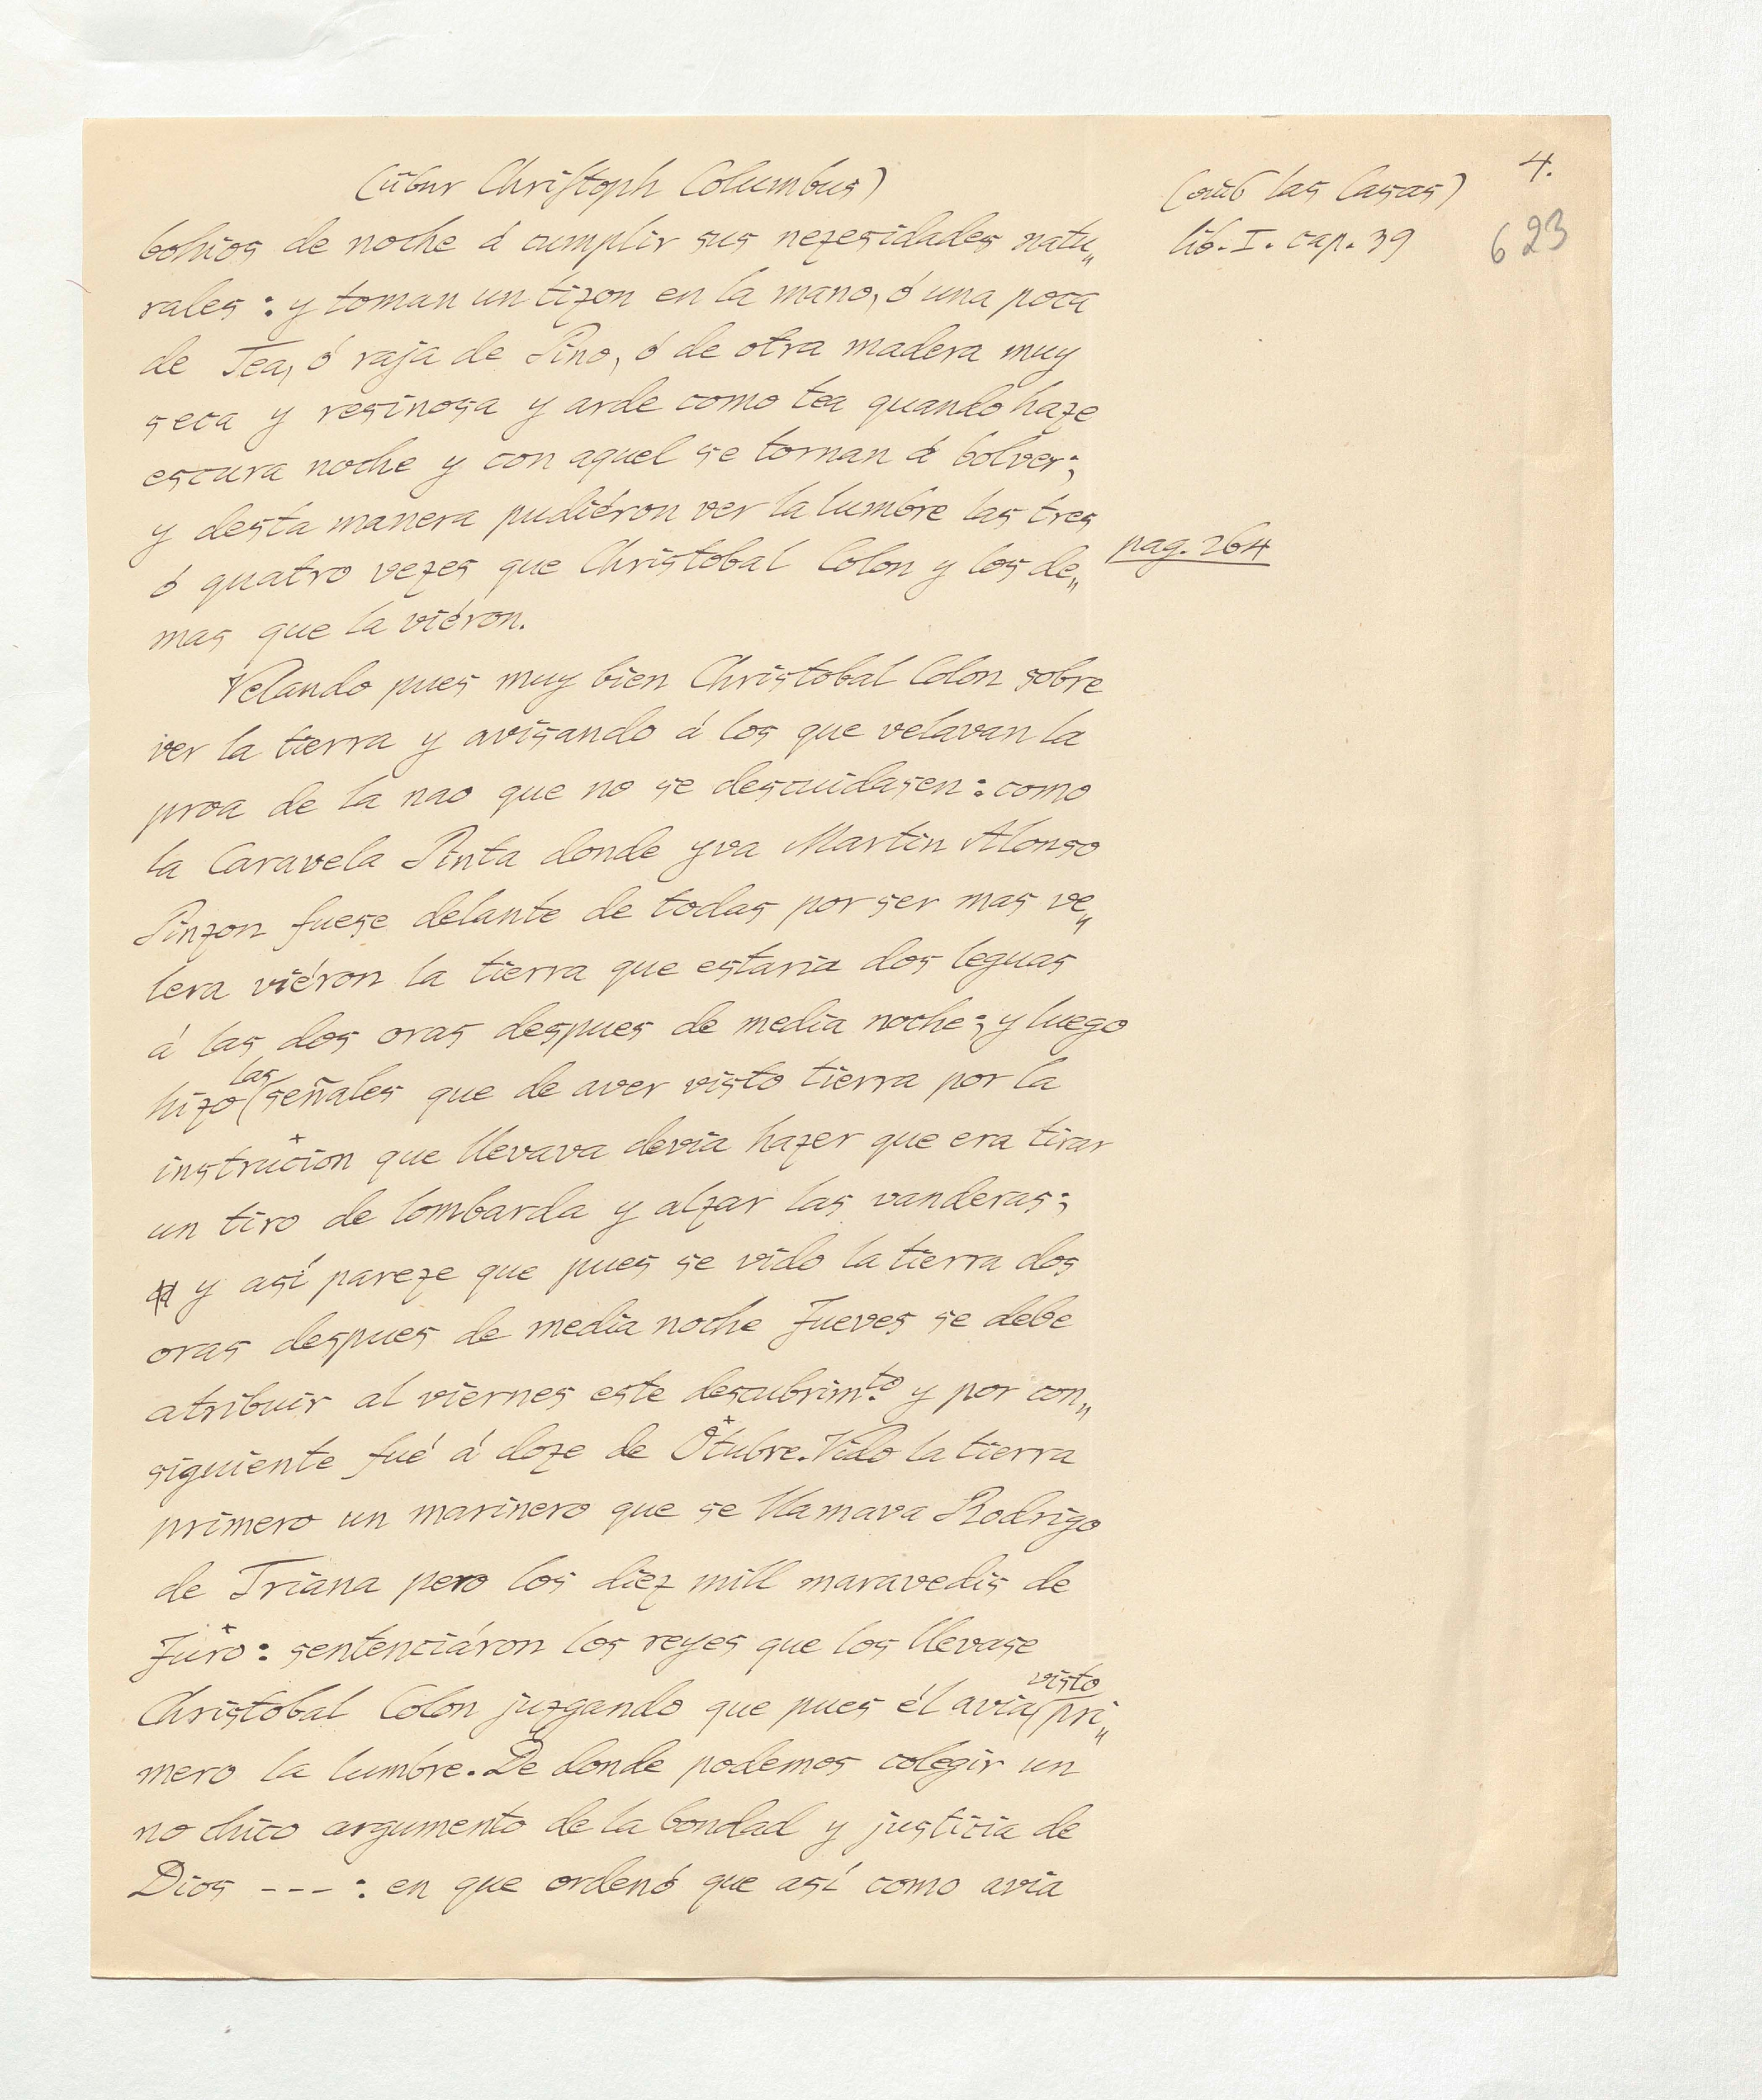 (über Christoph Columbus)
(aus las Casas)
4.
lib. I. cap. 39
623
bohios de noche á cumplir sus nezesidades natu„
rales : y toman un tizon en la mano, ó una poca
de Tea, ó raja de Pino, ó de otra madera muy
seca y resinosa y arde como tea quando haze
escura noche y con aquel se tornan á bolver;
y desta manera pudiéron ver la lumbre las tres
pag. 264
ó quatro vezes que Christobal Colon y los de„
mas que la viéron.
Velando pues muy bien Christobal Colon sobre
ver la tierra y avisando á los que velavan la
proa de la nao que no se descuidasen : como
la Caravela Pinta donde yva Martin Alonso
Pinzon fuese delante de todas por ser mas ve„
lera viéron la tierra que estaria dos leguas
á las dos oras despues de media noche; y luego
hizo las señales que de aver visto tierra por la
instrucion que llevava devia hazer que era tirar
un tiro de lombarda y alzar las vanderas;
y así pareze que pues se vido la tierra dos
oras despues de media noche Jueves se debe
atribuir al viernes este descubrimto. y por con„
siguiente fué á doze de Otubre. Vido la tierra
primero un marinero que se llamava Rodrigo
de Triana pero los diez mill maravedis de
Juro : sentenciáron los reyes que los llevase
Christobal Colon juzgando que pues él avia visto pri„
mero la lumbre. De donde podemos colegir un
no chico argumento de la bondad y justicia de
Dios --- : en que ordenó que así como avia